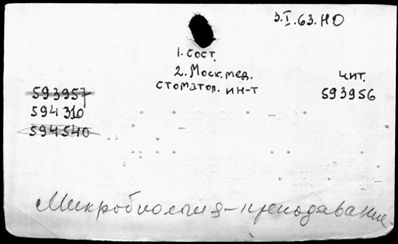 3.I.63.НО
1. сост.
2. Моск. мед.
стоматол. ин-т
чит.
593957
593956
594310
594540
Микробиология-преподавание